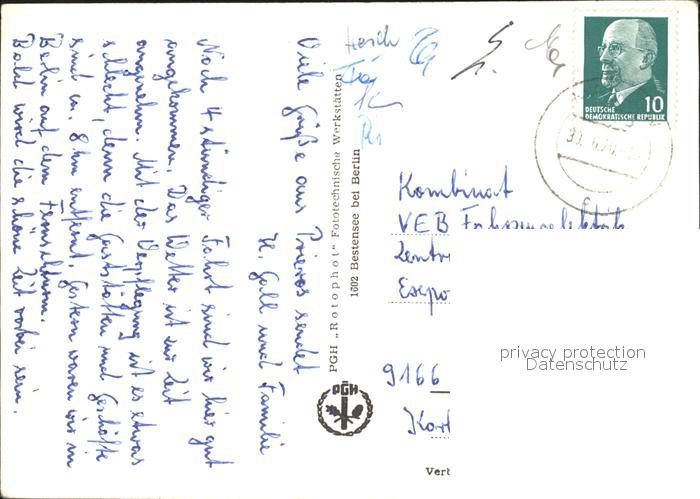 Viele Grüße aus Prieros sendet
H. Gall und Familie
Nach 4 stündiger Fahrt sind wir hier gut
angekommen. Das Wetter ist zur Zeit
angenehm. Mit der Verpflegung ist es etwas
schlecht, denn die Gaststätten und Geschäfte
sind ca. 8 km entfernt. Gestern waren wir in
Berlin auf dem Fernsehturm.
Bald wird die schöne Zeit vorbei sein.
PGH „Rotophot" Fototechnische Werkstätten
1602 Bestensee bei Berlin
PGH
DEUTSCHE
DEMOKRATISCHE REPUBLIK
10
Kombinat
VEB
Zentr
Expo
9166
Vert
privacy protection
Datenschutz